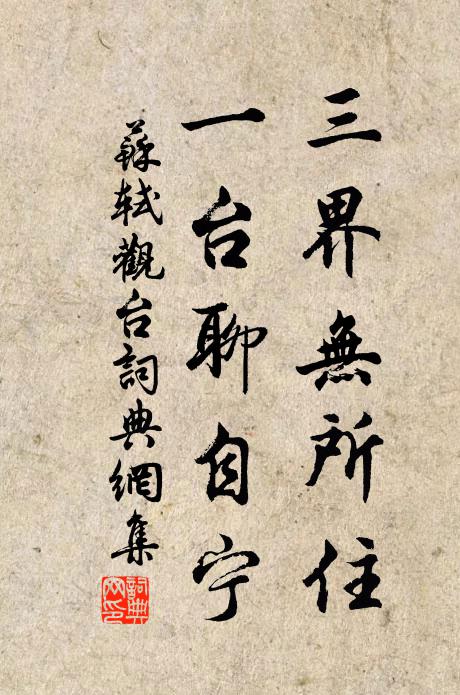 三界無所住
一台聊自宁
蘇軾觀台詞典網集
詞典网印